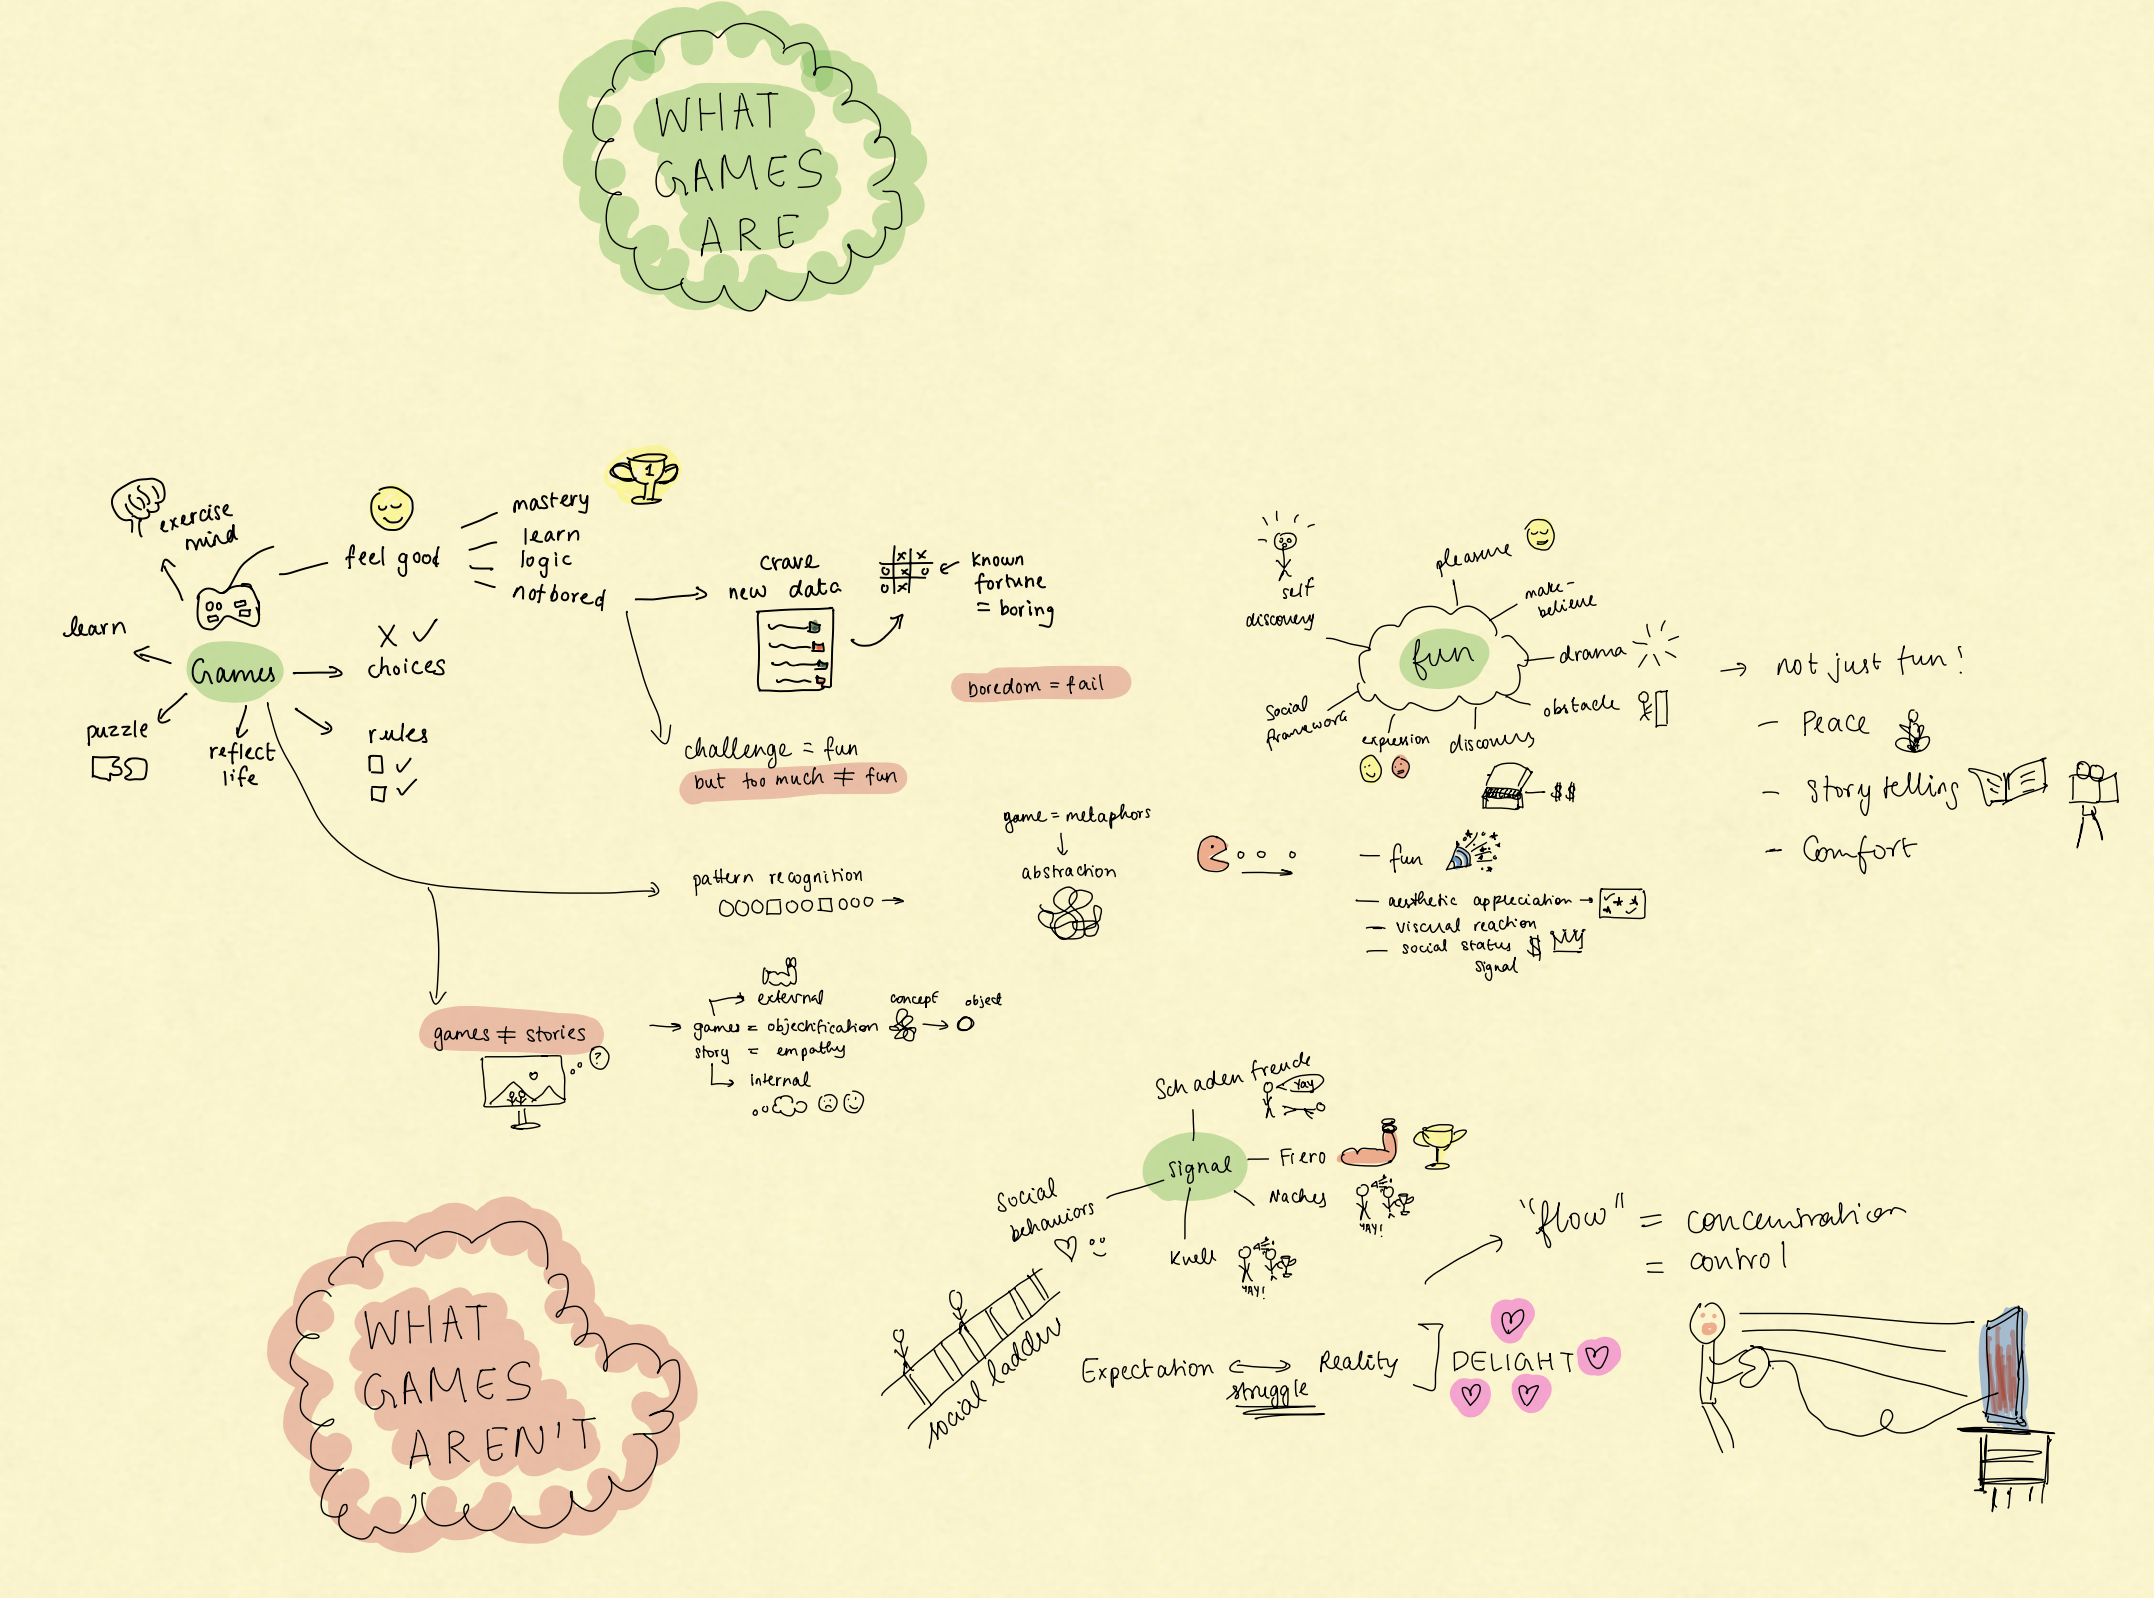 WHAT
GAMES
ARE
exercise
mind
feel good
mastery
learn
logic
not bored
1
crave
new data
x x
o x o
o x
known
fortune
= boring
boredom = fail
learn
Games
X ✓
choices
puzzle
reflect
life
rules
challenge = fun
but too much ≠ fun
pattern recognition
game = metaphors
abstraction
games ≠ stories
?
external
games = objectification
story = empathy
internal
concept
object
self
discovery
pleasure
make-
believe
fun
drama
obstacle
social
framework
expression
discovery
$$
→ not just fun!
- Peace
- Storytelling
- Comfort
- fun
- aesthetic appreciation →
- viscual reaction
- social status $
signal
Schadenfreude
Yay
signal
Fiero
Naches
YAY!
Kvell
YAY!
Social
behaviors
social ladder
Expectation ↔ Reality
struggle
DELIGHT
"flow" = concentration
= control
WHAT
GAMES
AREN'T